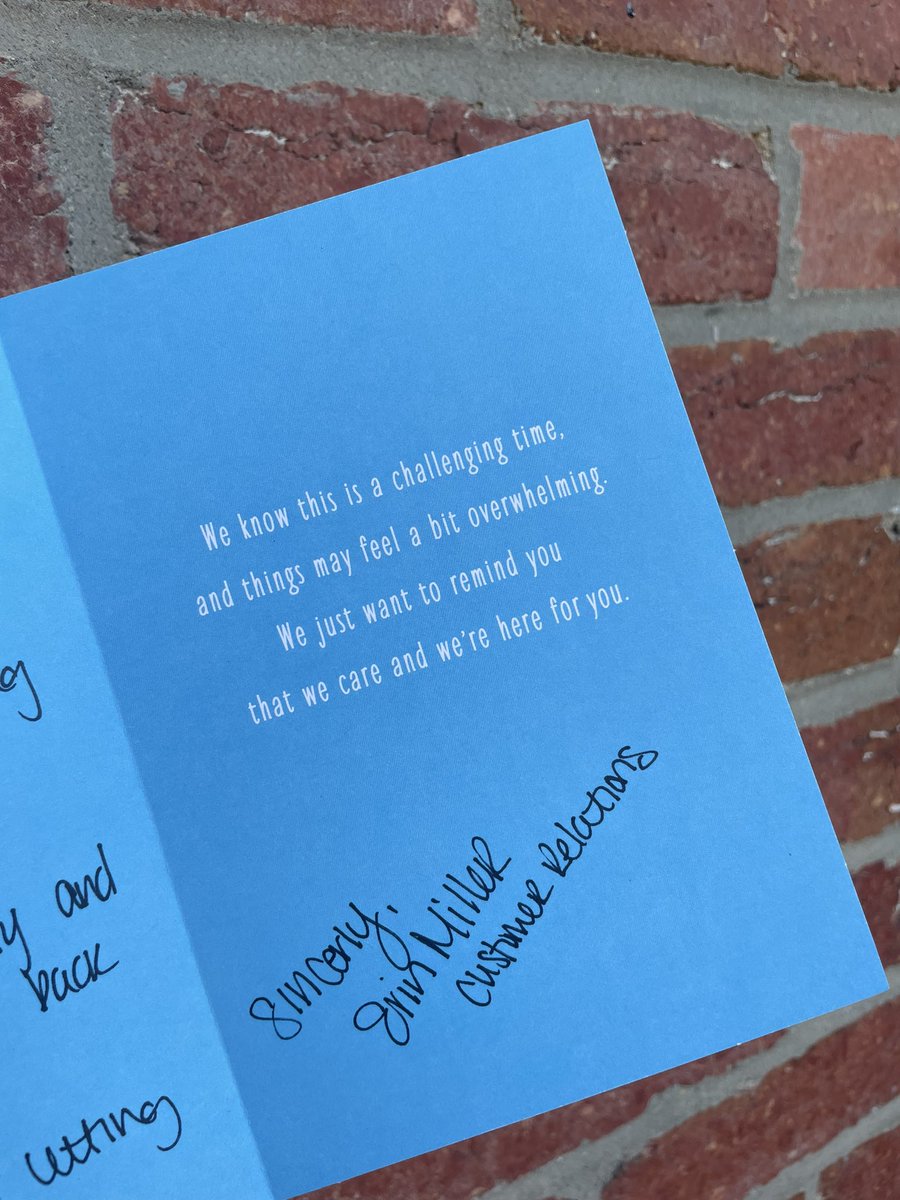 g
y and
back
letting
We know this is a challenging time,
and things may feel a bit overwhelming.
We just want to remind you
that we care and we're here for you.
Sincerly,
Erin Miller
Customer Relations